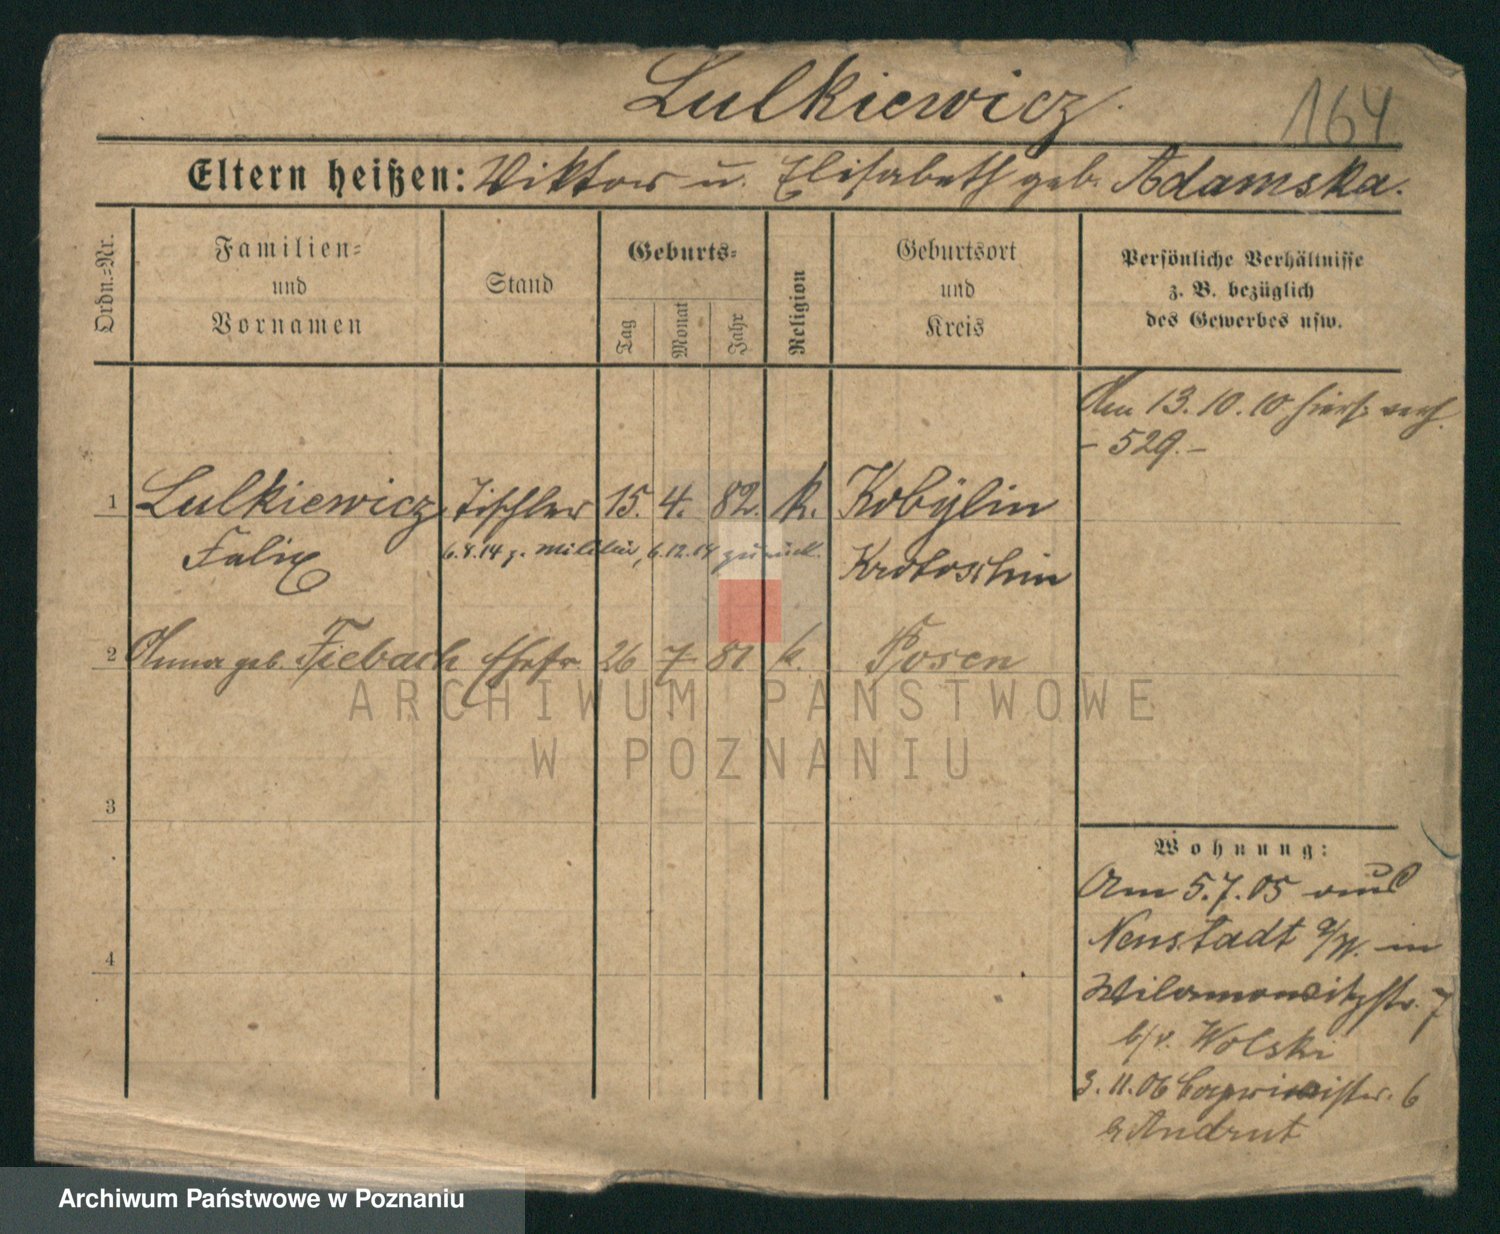 Lulkiewicz.
164
Eltern heißen: Viktor u. Elisabeth geb. Adamska.
Ordn.=Nr.
Familien=
und
Vornamen
Stand
Geburts=
Tag
Monat
Jahr
Religion
Geburtsort
und
Kreis
Persönliche Verhältnisse
z. B. bezüglich
des Gewerbes usw.
Am 13.10.10 hiers. verh.
- 529. -
1 Lulkiewicz Tischler 15. 4. 82. k. Kobylin
Felix 6.8.14 z. Militär, 6.12.14 zurück. Krotoschin
2 Anna geb. Fiebach Ehefr. 26 7 81 k. Posen
ARCHIWUM PAŃSTWOWE
W POZNANIU
3
4
Wohnung:
Am 5.7.05 aus
Neustadt a/W. in
Wilamowitzstr. 7
b/v. Wolski
3.11.06 6
Andrut
Archiwum Państwowe w Poznaniu